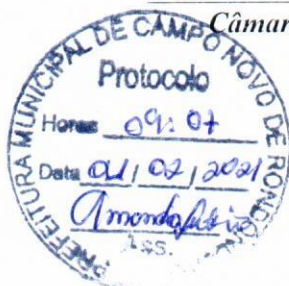 Câmar
PREFEITURA MUNICIPAL DE CAMPO NOVO DE RONDÔNIA
Protocolo
Horas 09:07
Data 01/02/2021
Ass.